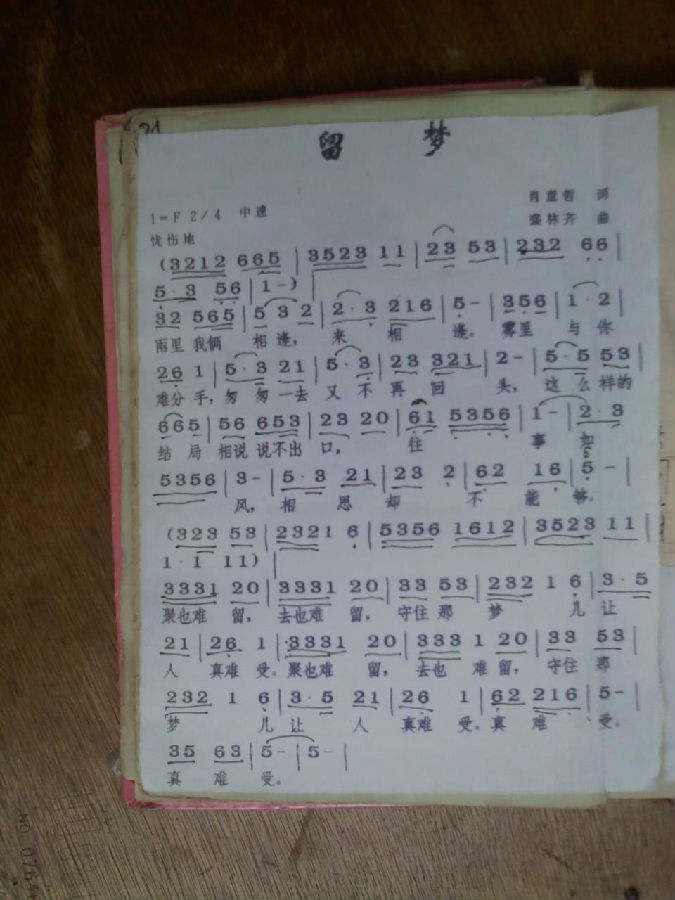 留 梦
1=F 2/4 中速
忧伤地
词
盛林齐 曲
(3212 665 | 3523 11 | 23 53 | 232 66 |
5·3 56 | 1-) |
32 565 | 5 3 2 | 2·3 216 | 5- | 356 | 1·2 |
雨里我俩 相逢, 来 相 逢。雾里 与你
26 1 | 5·3 21 | 5·3 | 23 321 | 2- | 5·5 53 |
难分手, 匆匆一去 又不再回 头, 这么样的
665 | 56 653 | 23 20 | 61 5356 | 1- | 2·3
结局 相说说不出 口, 往 事 如
5356 | 3- | 5·3 21 | 23 2 | 62 16 | 5- |
风, 相 思 却 不 能 够。
(323 53 | 2321 6 | 5356 1612 | 3523 11 |
1·1 11) |
3331 20 | 3331 20 | 33 53 | 232 1 6 | 3·5
聚也难 留, 去也难 留, 守住那 梦 儿 让
21 | 26 1 | 3331 20 | 333 1 20 | 33 53 |
人 真难 受。聚也难 留, 去也 难留, 守住 那
232 1 6 | 3·5 21 | 26 1 | 62 216 | 5- |
梦 儿让 人 真难 受。真 难 受。
35 63 | 5- | 5- |
真 难 受。